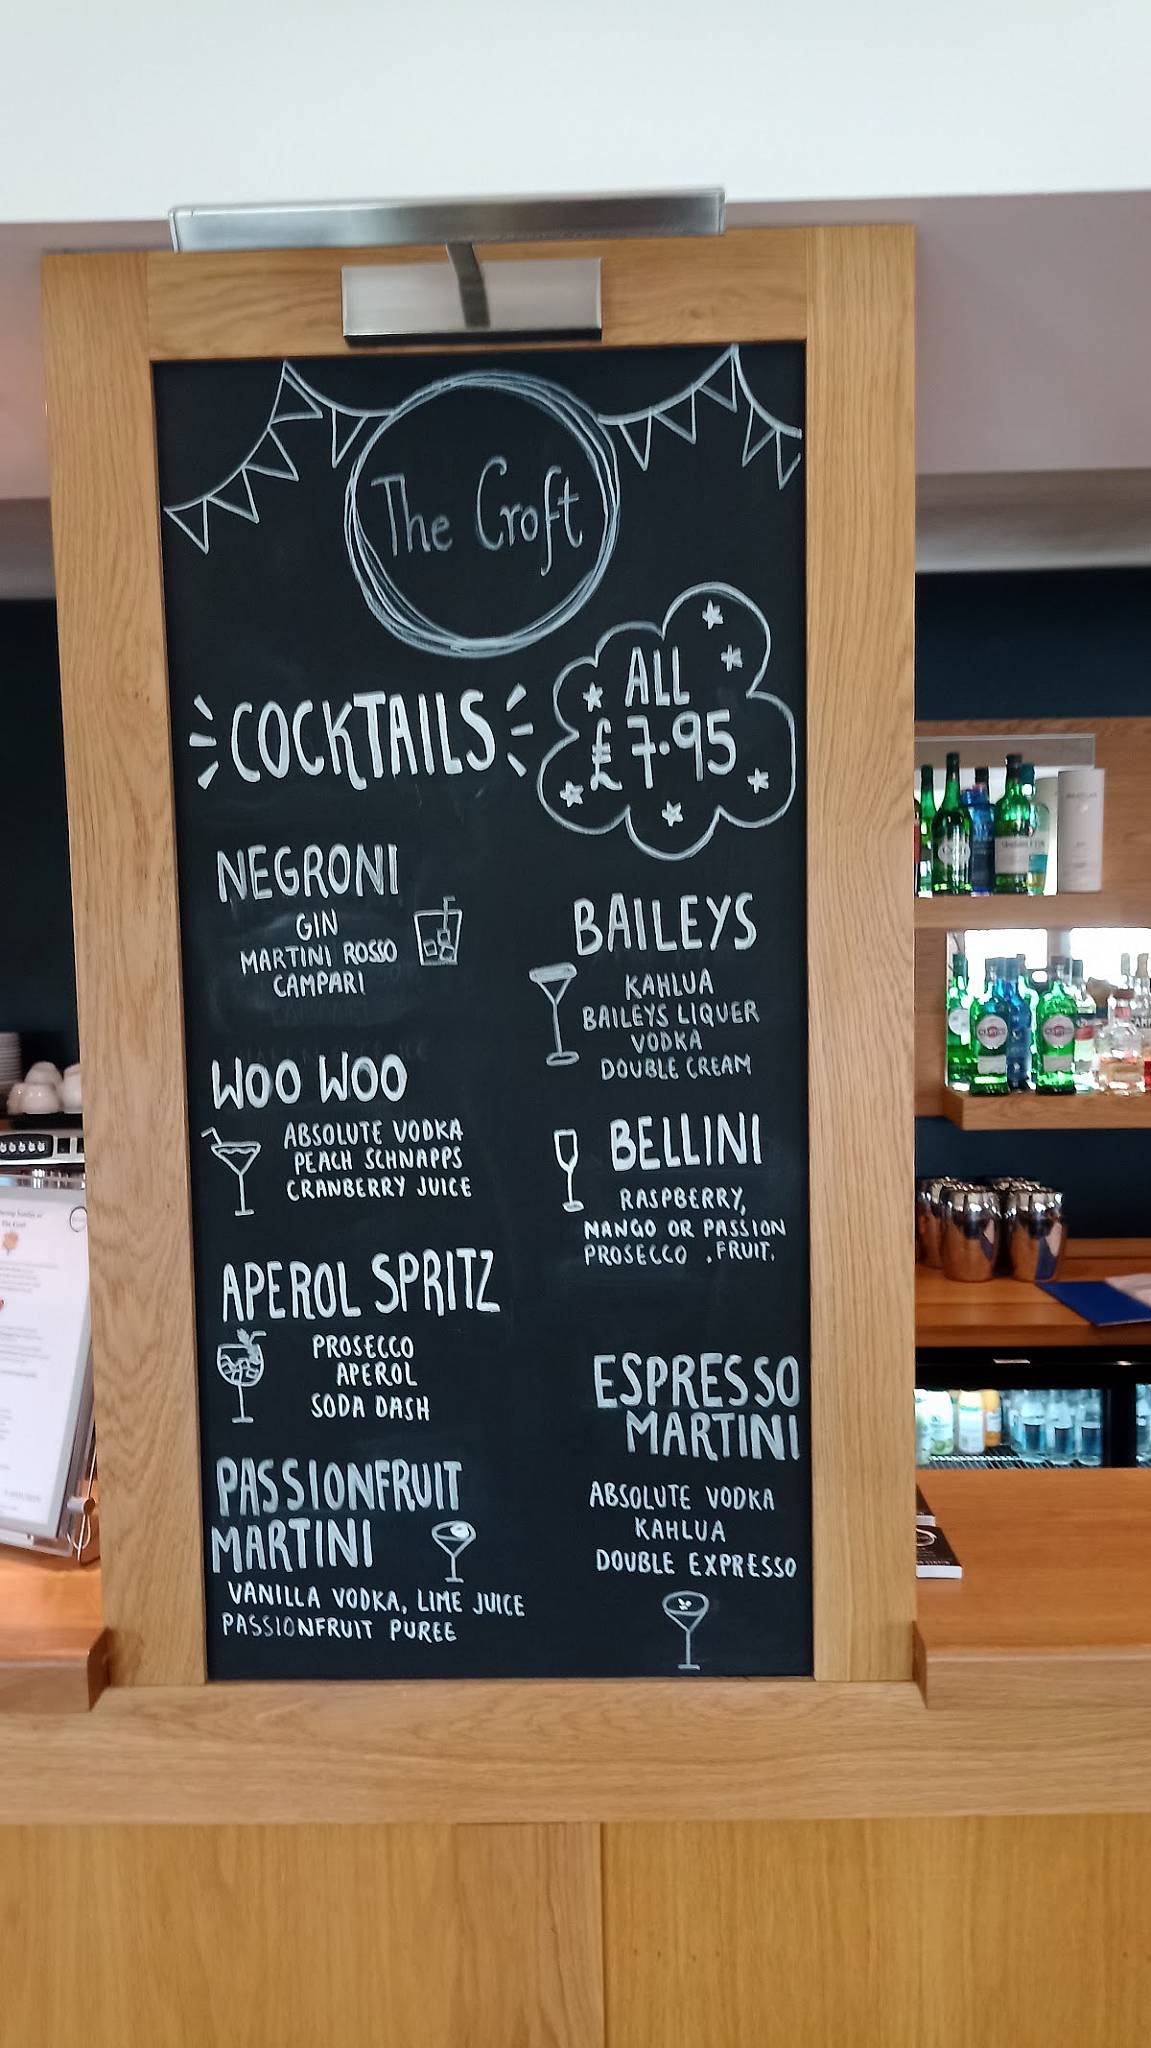 The Croft
COCKTAILS
ALL
£7.95
NEGRONI
GIN
MARTINI ROSSO
CAMPARI
WOO WOO
ABSOLUTE VODKA
PEACH SCHNAPPS
CRANBERRY JUICE
APEROL SPRITZ
PROSECCO
APEROL
SODA DASH
PASSIONFRUIT
MARTINI
VANILLA VODKA, LIME JUICE
PASSIONFRUIT PUREE
BAILEYS
KAHLUA
BAILEYS LIQUER
VODKA
DOUBLE CREAM
BELLINI
RASPBERRY,
MANGO OR PASSION
PROSECCO . FRUIT.
ESPRESSO
MARTINI
ABSOLUTE VODKA
KAHLUA
DOUBLE EXPRESSO